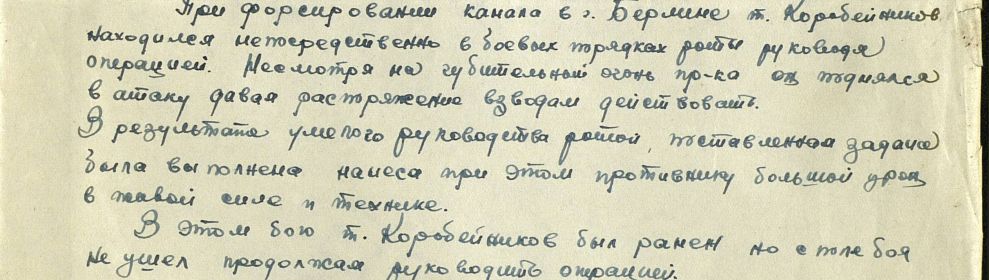 При форсировании канала в г. Берлине т. Коробейников
находился непосредственно в боевых порядках роты руководя
операцией. Несмотря на губительный огонь пр-ка он поднялся
в атаку давая распоряжение взводам действовать.
В результате умелого руководства ротой, поставленная задача
была выполнена нанеса при этом противнику большой урон
в живой силе и технике.
В этом бою т. Коробейников был ранен но с поле боя
не ушел продолжал руководить операцией.